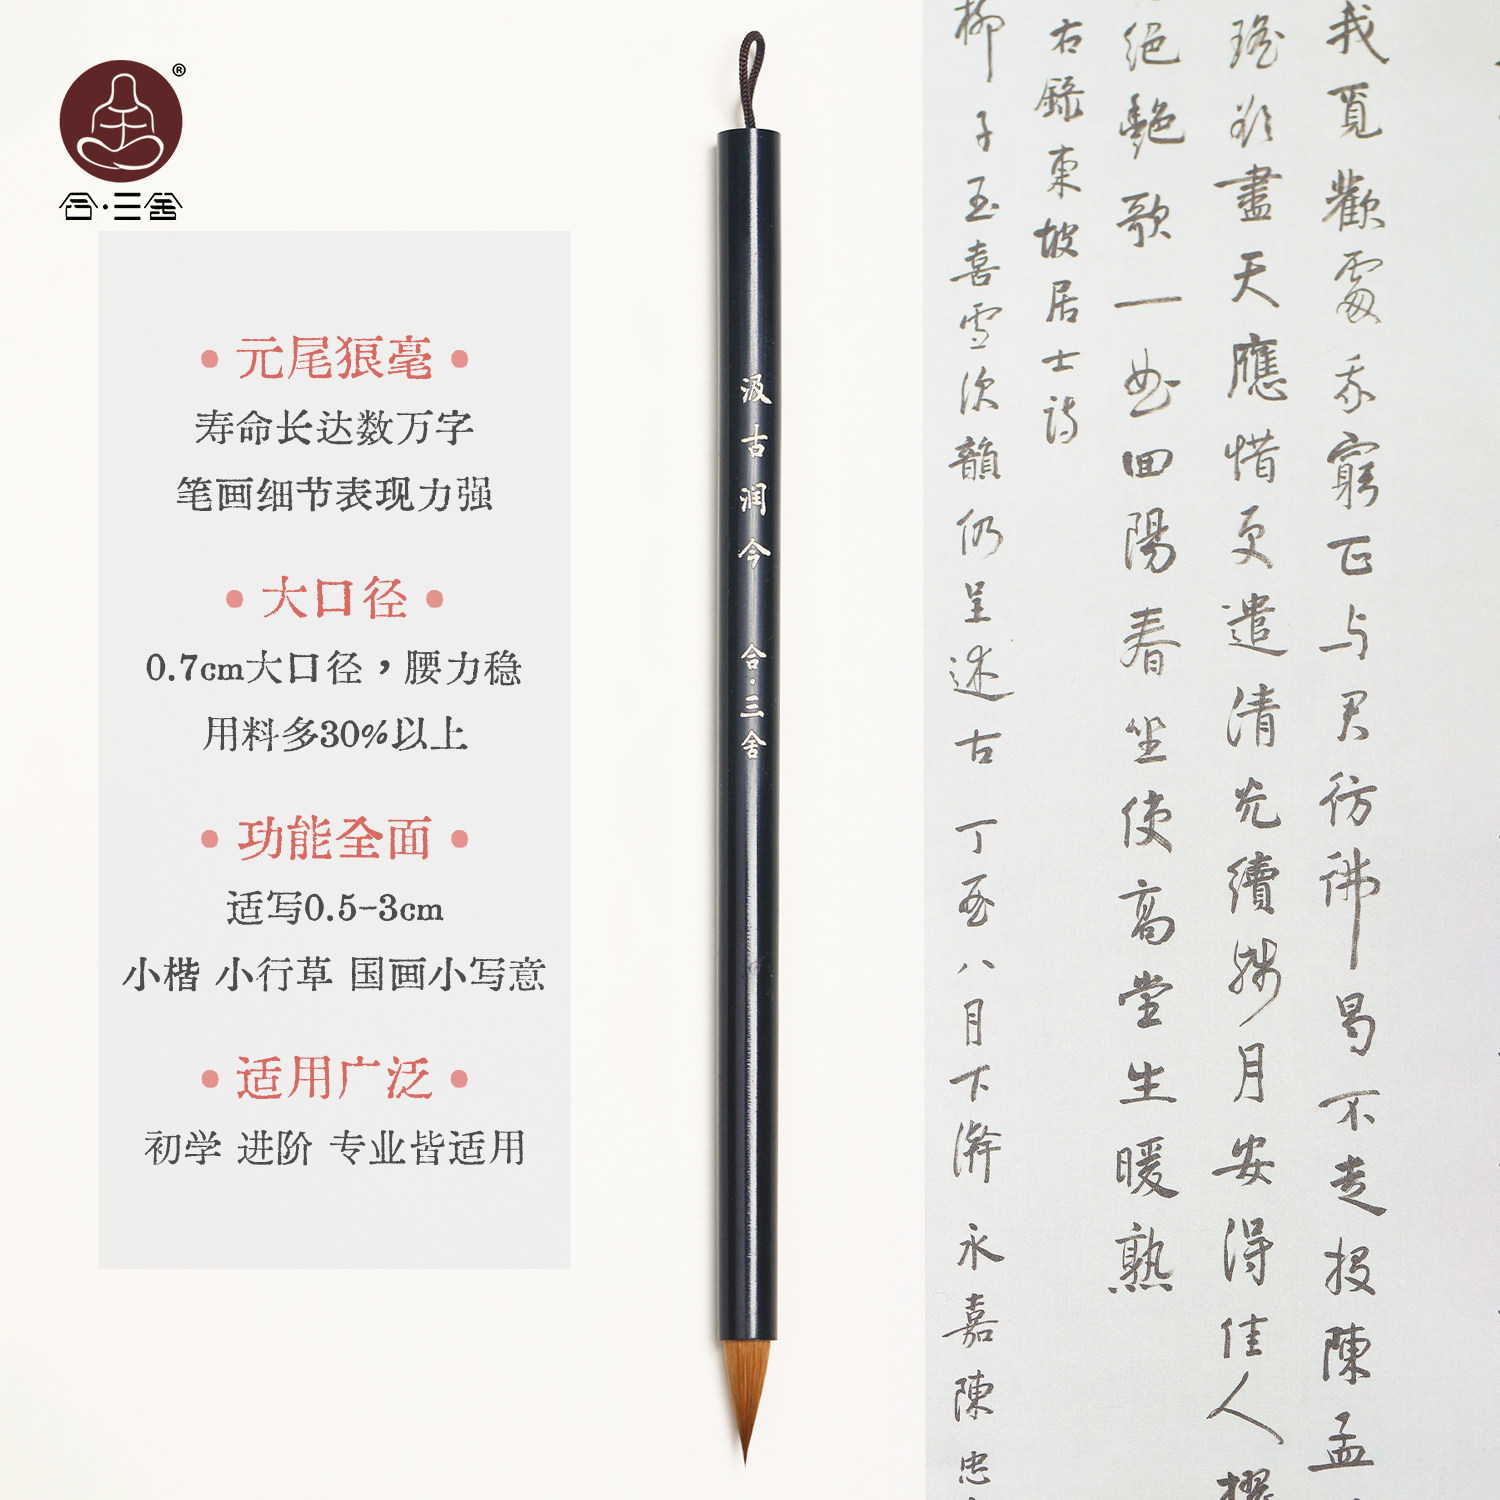 ®
合·三舍
元尾狼毫
寿命长达数万字
笔画细节表现力强
大口径
0.7cm大口径，腰力稳
用料多30%以上
功能全面
适写0.5-3cm
小楷 小行草 国画小写意
适用广泛
初学 进阶 专业皆适用
汲古润今 合·三舍
我覓歡處我窮正与君彷彿曷不走投陳孟
瑤欲盡天應惜更遣清光續殘月安得佳人擢
絕艷歌一曲回陽春坐使高堂生暖熱
右錄東坡居士詩
柳子玉喜雪次韻仍呈述古 丁酉八月下澣 永嘉陳忠